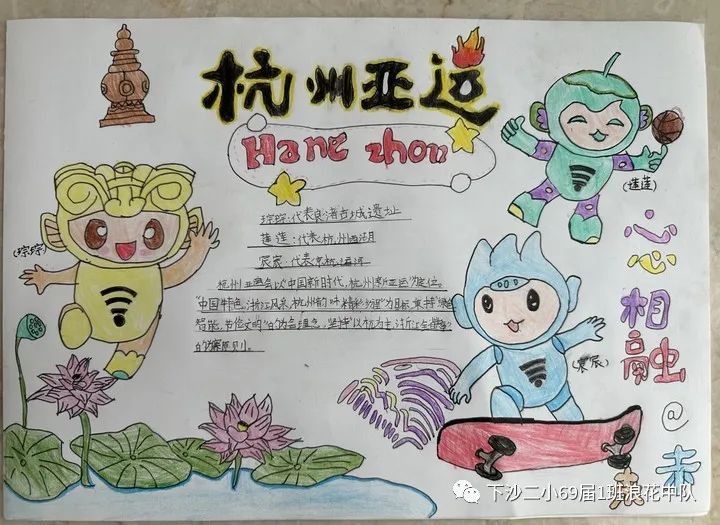 杭州亚运
Hang zhou
(莲莲)
(琮琮)
琮琮:代表良渚古城遗址
莲莲:代表杭州西湖
宸宸:代表京杭运河
杭州亚运会以“中国新时代,杭州新亚运”为定位。
“中国特色,浙江风采,杭州韵味,精彩
为目标,秉持“绿色
智能,节俭文明”的办会理念,坚持“以杭为主,
的办赛原则。
(宸宸)
心心相融@未来
下沙二小69届1班浪花中队